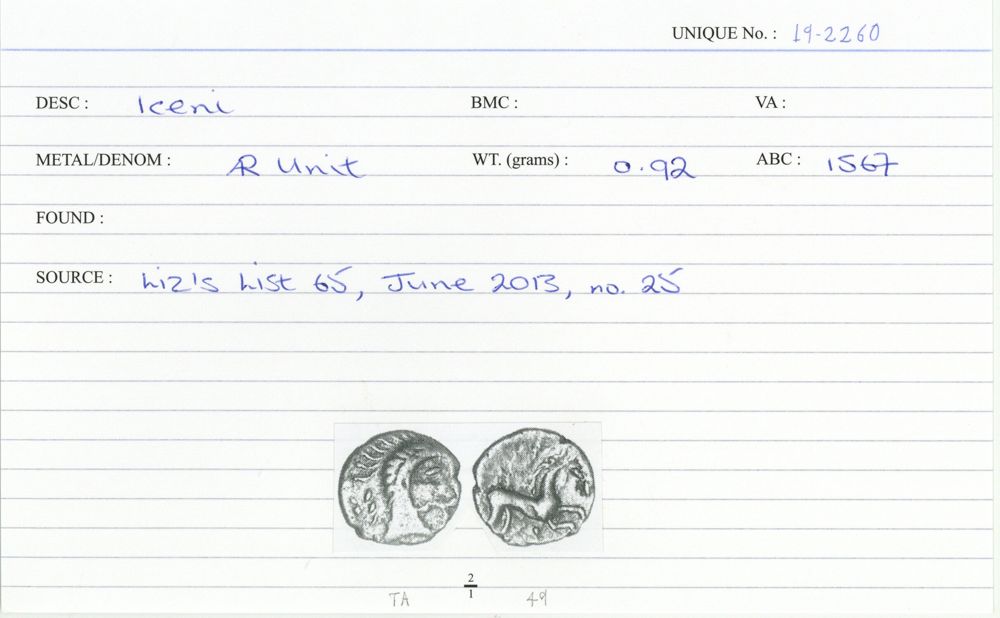 UNIQUE No. : 19-2260
DESC : Iceni BMC : VA :
METAL/DENOM : AR Unit WT. (grams) : 0.92 ABC : 1567
FOUND :
SOURCE : Liz's List 65, June 2013, no. 25
2
1
TA 49